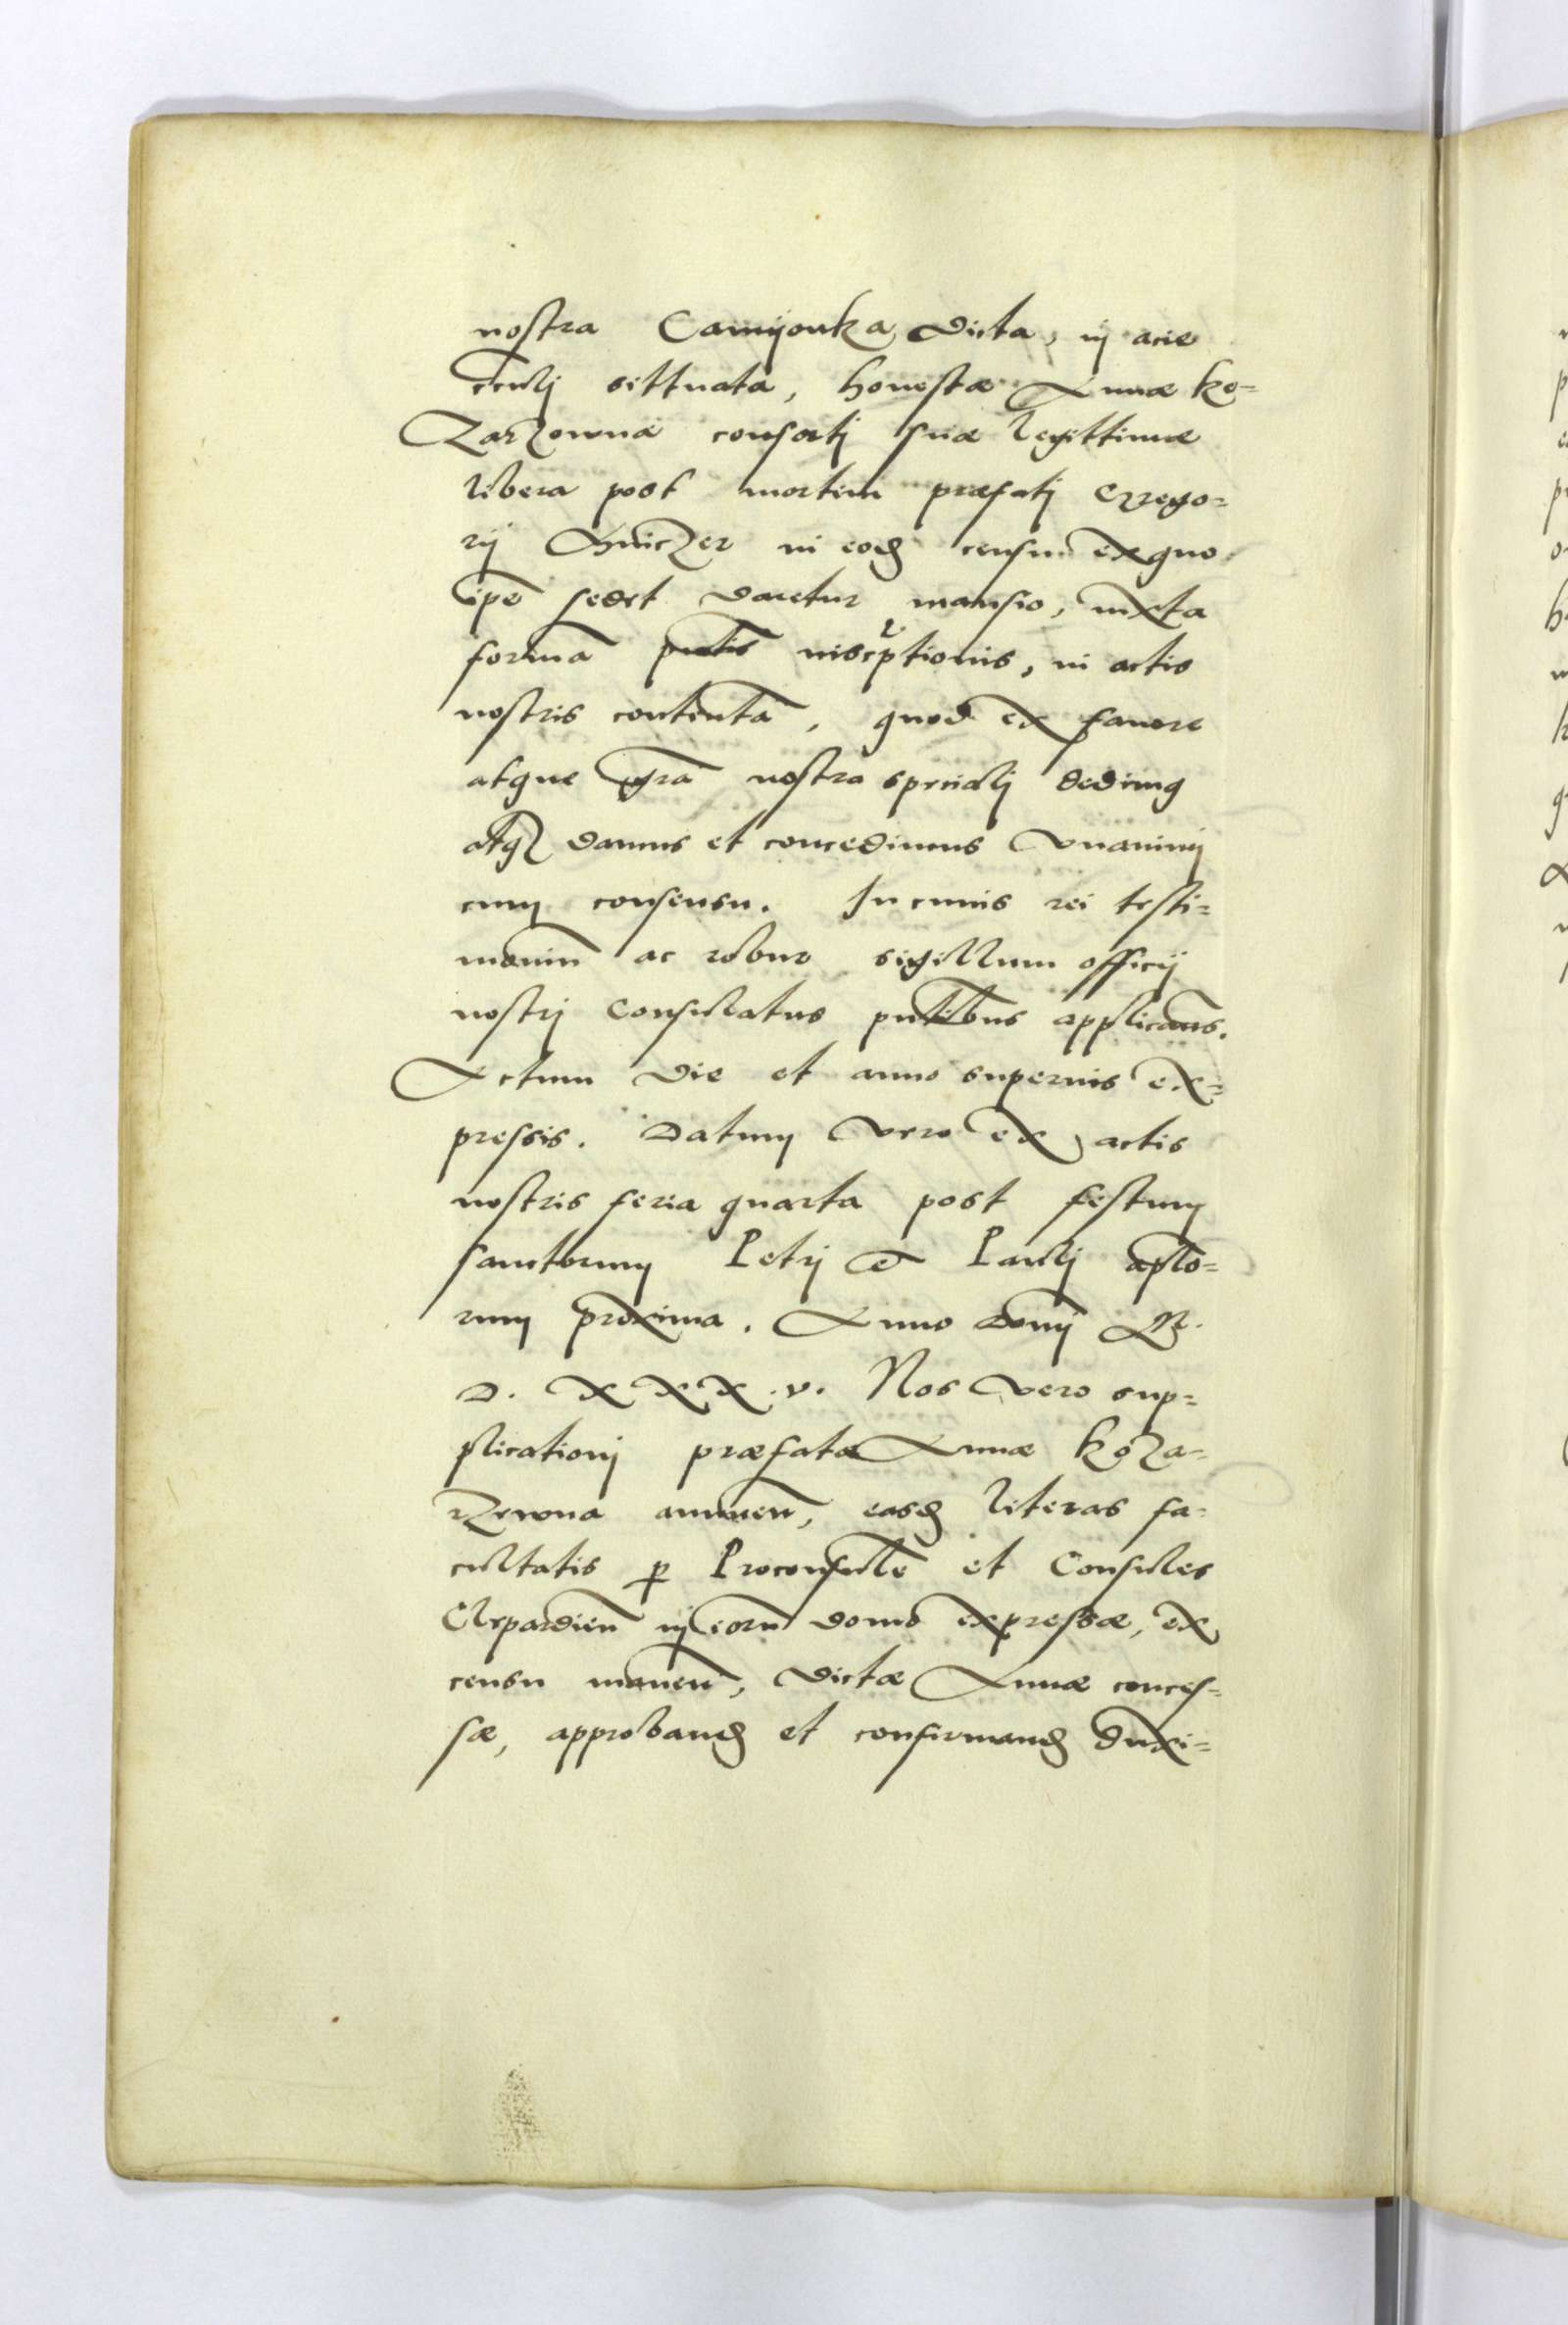 nostra Camijonka dicta, in acie
circulj sittuata, honestæ Annæ ko=
zarzowna consortj suæ legittimæ
libera post mortem præfatj Grego=
rij Gniczer in eodē censu ex quo
ipē sedet daretur mansio, iuxta
formā pn̄tis inscrptionis, in actis
nostris contentā, quod ex fauore
atque grā nostra specialj dedimꝰ
atqꝫ damus et concedimus Vnanimj
cum consensu. In cuius rei testi=
moniū ac robur sigillum officij
nostrj Consulatus pn̄tibus applicauims.
Actum die et anno supernis ex=
pressis. Datum Vero ex actis
nostris feria quarta post festum
sanctorum Petrj et Paulj aplo=
rum proxima. Anno Donj M.
D. X X X .v. Nos Vero sup=
plicationj præfatæ Annæ koza=
rzewna annueñ, easdē literas fa=
cultatis ꝑ Proconsulē et Consules
Clepardieñ in eorū domo expressæ, ex
censu maneñ, dictæ Annæ conces=
sæ, approbandē et confirmandē duxi=